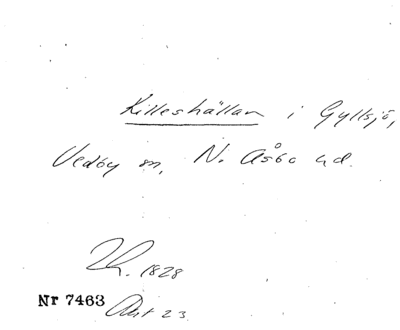 Killeshällan i Gyllsjö,
Vedby sn, N. Åsbo hd.
Kh. 1828
Nr 7463 Avt 23